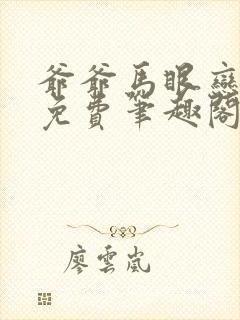 爺爺馬眼
免費筆趣閣
廖雲嵐